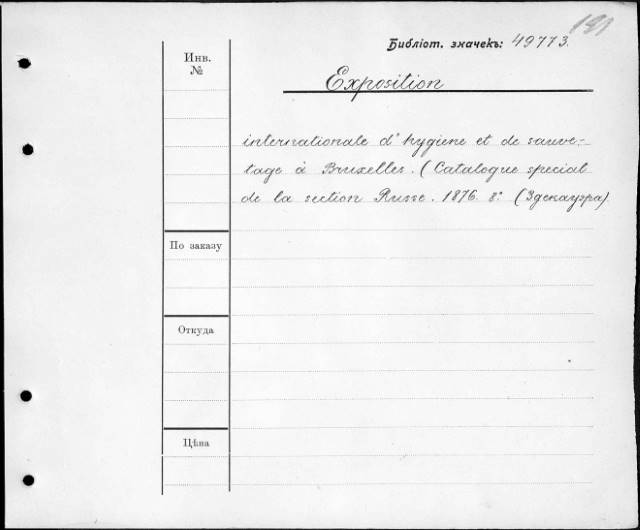 191
Библіот. значекъ: 49773.
Инв.
№
Exposition
internationale d'hygiene et de sauve-
tage à Bruxelles. (Catalogue special
de la section Russe. 1876. 8° (Здекауэра)
По заказу
Откуда
Цѣна